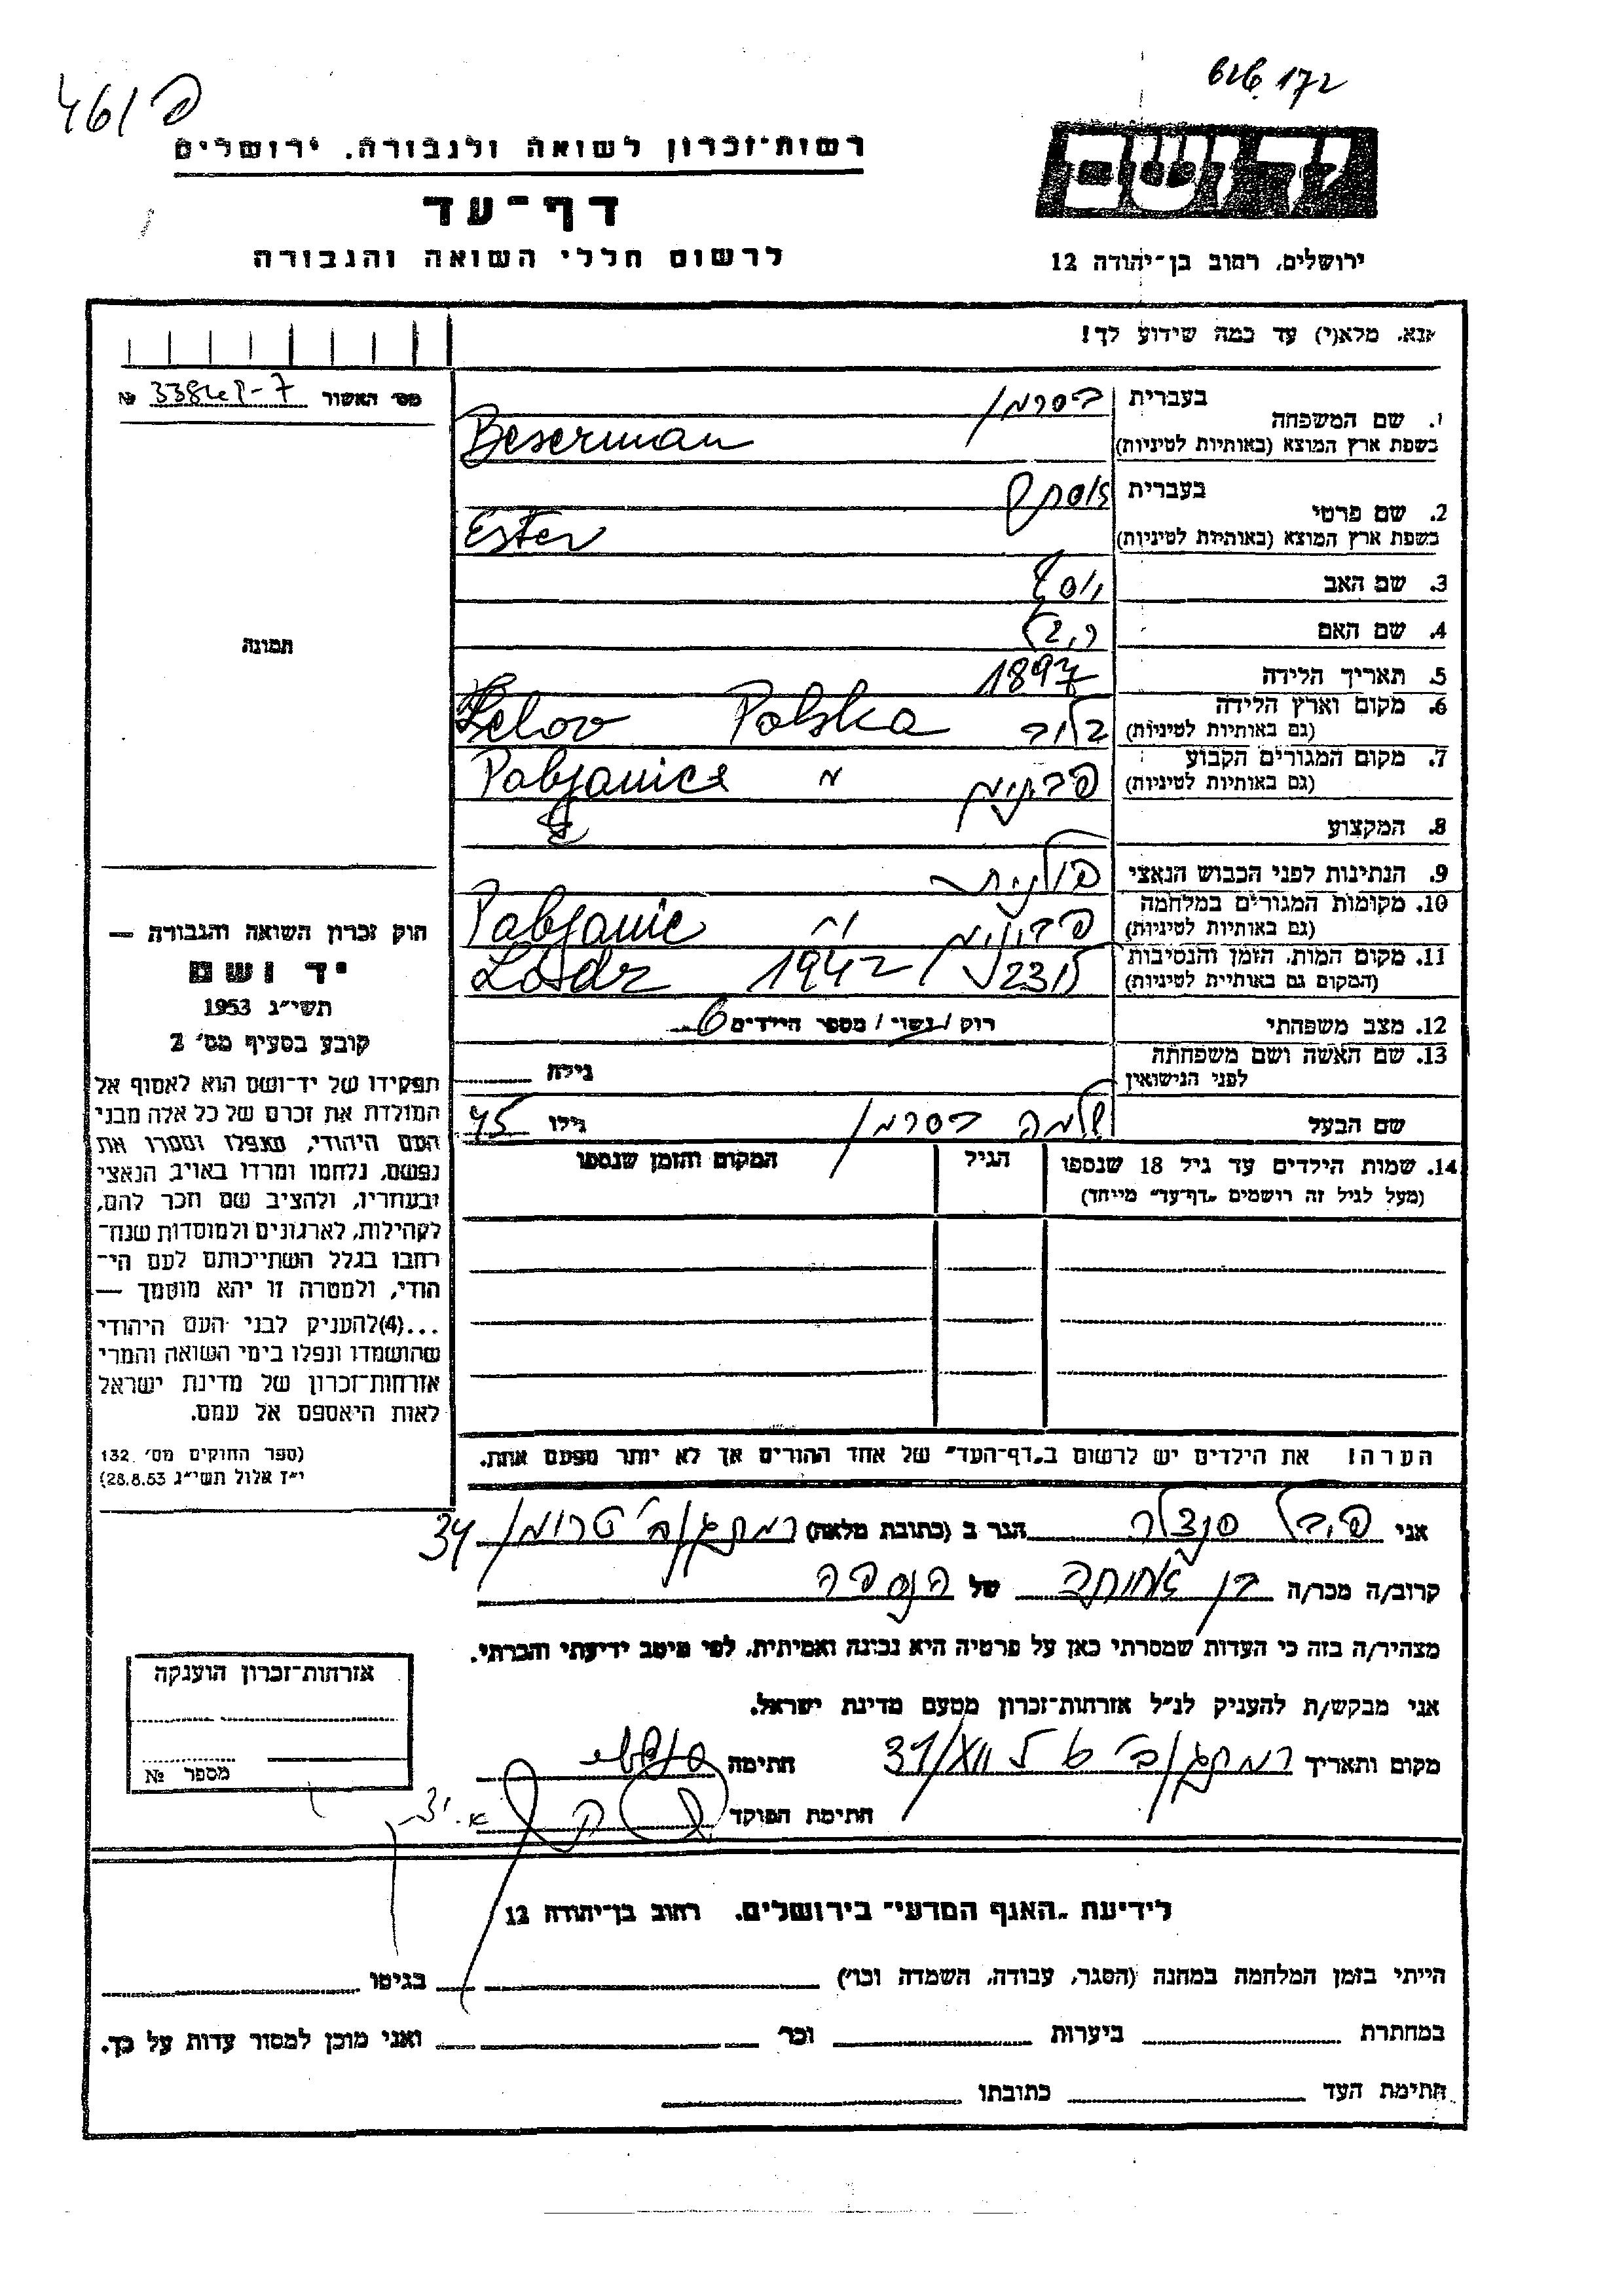 461/פ
רשות־זכרון לשואה ולגבורה, ירושלים
דף־עד
לרשום חללי השואה והגבורה
ירושלים, רחוב בן־יהודה 12
אנא, מלא(י) עד כמה שידוע לך!
מס׳ האשור №
1. שם המשפחה בעברית בסרמן
בשפת ארץ המוצא (באותיות לטיניות) Beserman
2. שם פרטי בעברית אסתר
בשפת ארץ המוצא (באותיות לטיניות) Ester
3. שם האב יוסף
4. שם האם
5. תאריך הלידה 1897
6. מקום וארץ הלידה (גם באותיות לטיניות) Polska
7. מקום המגורים הקבוע (גם באותיות לטיניות) Pabjanice "
8. המקצוע
9. הנתינות לפני הכבוש הנאצי פולנית
10. מקומות המגורים במלחמה (גם באותיות לטיניות) Pabjanic
11. מקום המות, הזמן והנסיבות (המקום גם באותיות לטיניות) לודז 1942 Lodz
12. מצב משפחתי רוק / נשוי / מספר הילדים 6
13. שם האשה ושם משפחתה לפני הנישואין גילה
שם הבעל שלמה בסרמן גילו 45
14. שמות הילדים עד גיל 18 שנספו הגיל המקום והזמן שנספו
(מעל לגיל זה רושמים „דף־עד” מיוחד)
הערה! את הילדים יש לרשום ב„דף־העד” של אחד ההורים אך לא יותר מפעם אחת.
תמונה
חוק זכרון השואה והגבורה —
יד ושם
תשי״ג 1953
קובע בסעיף מס׳ 2
תפקידו של יד־ושם הוא לאסוף אל
המולדת את זכרם של כל אלה מבני
העם היהודי, שנפלו ומסרו את
נפשם, נלחמו ומרדו באויב הנאצי
ובעוזריו, ולהציב שם וזכר להם,
לקהילות, לארגונים ולמוסדות שנח־
רבו בגלל השתייכותם לעם הי־
הודי, ולמטרה זו יהא מוסמך —
...(4)להעניק לבני העם היהודי
שהושמדו ונפלו בימי השואה והמרי
אזרחות־זכרון של מדינת ישראל
לאות היאספם אל עמם.
(ספר החוקים מס׳ 132.
י״ז אלול תשי״ג 28.8.53)
אני הגר ב (כתובת מלאה) רמת גן 34
קרוב/ה מכר/ה בן אחותה של הנספה
מצהיר/ה בזה כי העדות שמסרתי כאן על פרטיה היא נכונה ואמיתית, לפי מיטב ידיעתי והכרתי.
אני מבקש/ת להעניק לנ״ל אזרחות־זכרון מטעם מדינת ישראל.
מקום ותאריך רמת גן חתימה
חתימת הפוקד
אזרחות־זכרון הוענקה
מספר №
לידיעת „האגף המדעי” בירושלים, רחוב בן־יהודה 12
הייתי בזמן המלחמה במחנה (הסגר, עבודה, השמדה וכו׳) בגיטו
במחתרת ביערות וכו׳ ואני מוכן למסור עדות על כך.
חתימת העד כתובתו